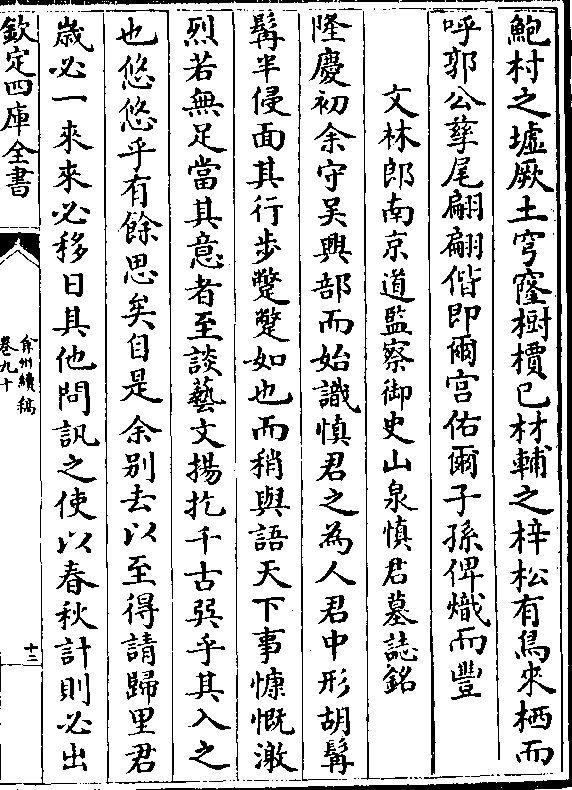 鮑村之墟厥土穹窿樹檟已材輔之梓松有鳥來栖而
呼郭公孽尾翩翩偕即爾宫佑爾子孫俾熾而豐
文林郎南京道監察御史山泉慎君墓誌銘
隆慶初余守吴興部而始識慎君之為人君中形胡髯
髯半侵面其行步蹩蹩如也而稍與語天下事慷慨激
烈若無足當其意者至談藝文揚扢千古㢲乎其入之
也悠悠乎有餘思矣自是余别去以至得請歸里君
歳必一來來必移日其他問訊之使以春秋計則必出
欽定四庫全書
弇州續稿
卷九十
十三